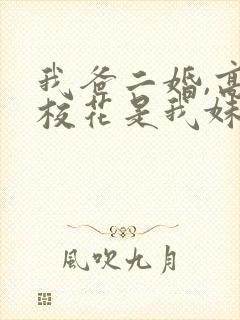 我爸二婚,高
校花是我妹
風吹九月